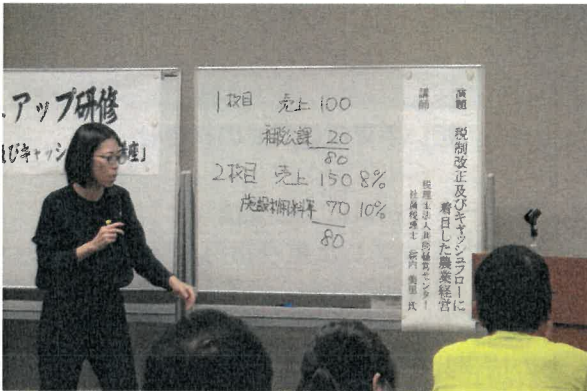 アップ研修
びキャッシ
座」
1枚目 売上 100
租税公課 20
80
2枚目 売上 150 8%
施設利用料等 70 10%
80
演題 税制改正及びキャッシュフローに
着目した農業経営
講師 税理士法人共同経営センター
社員税理士
氏